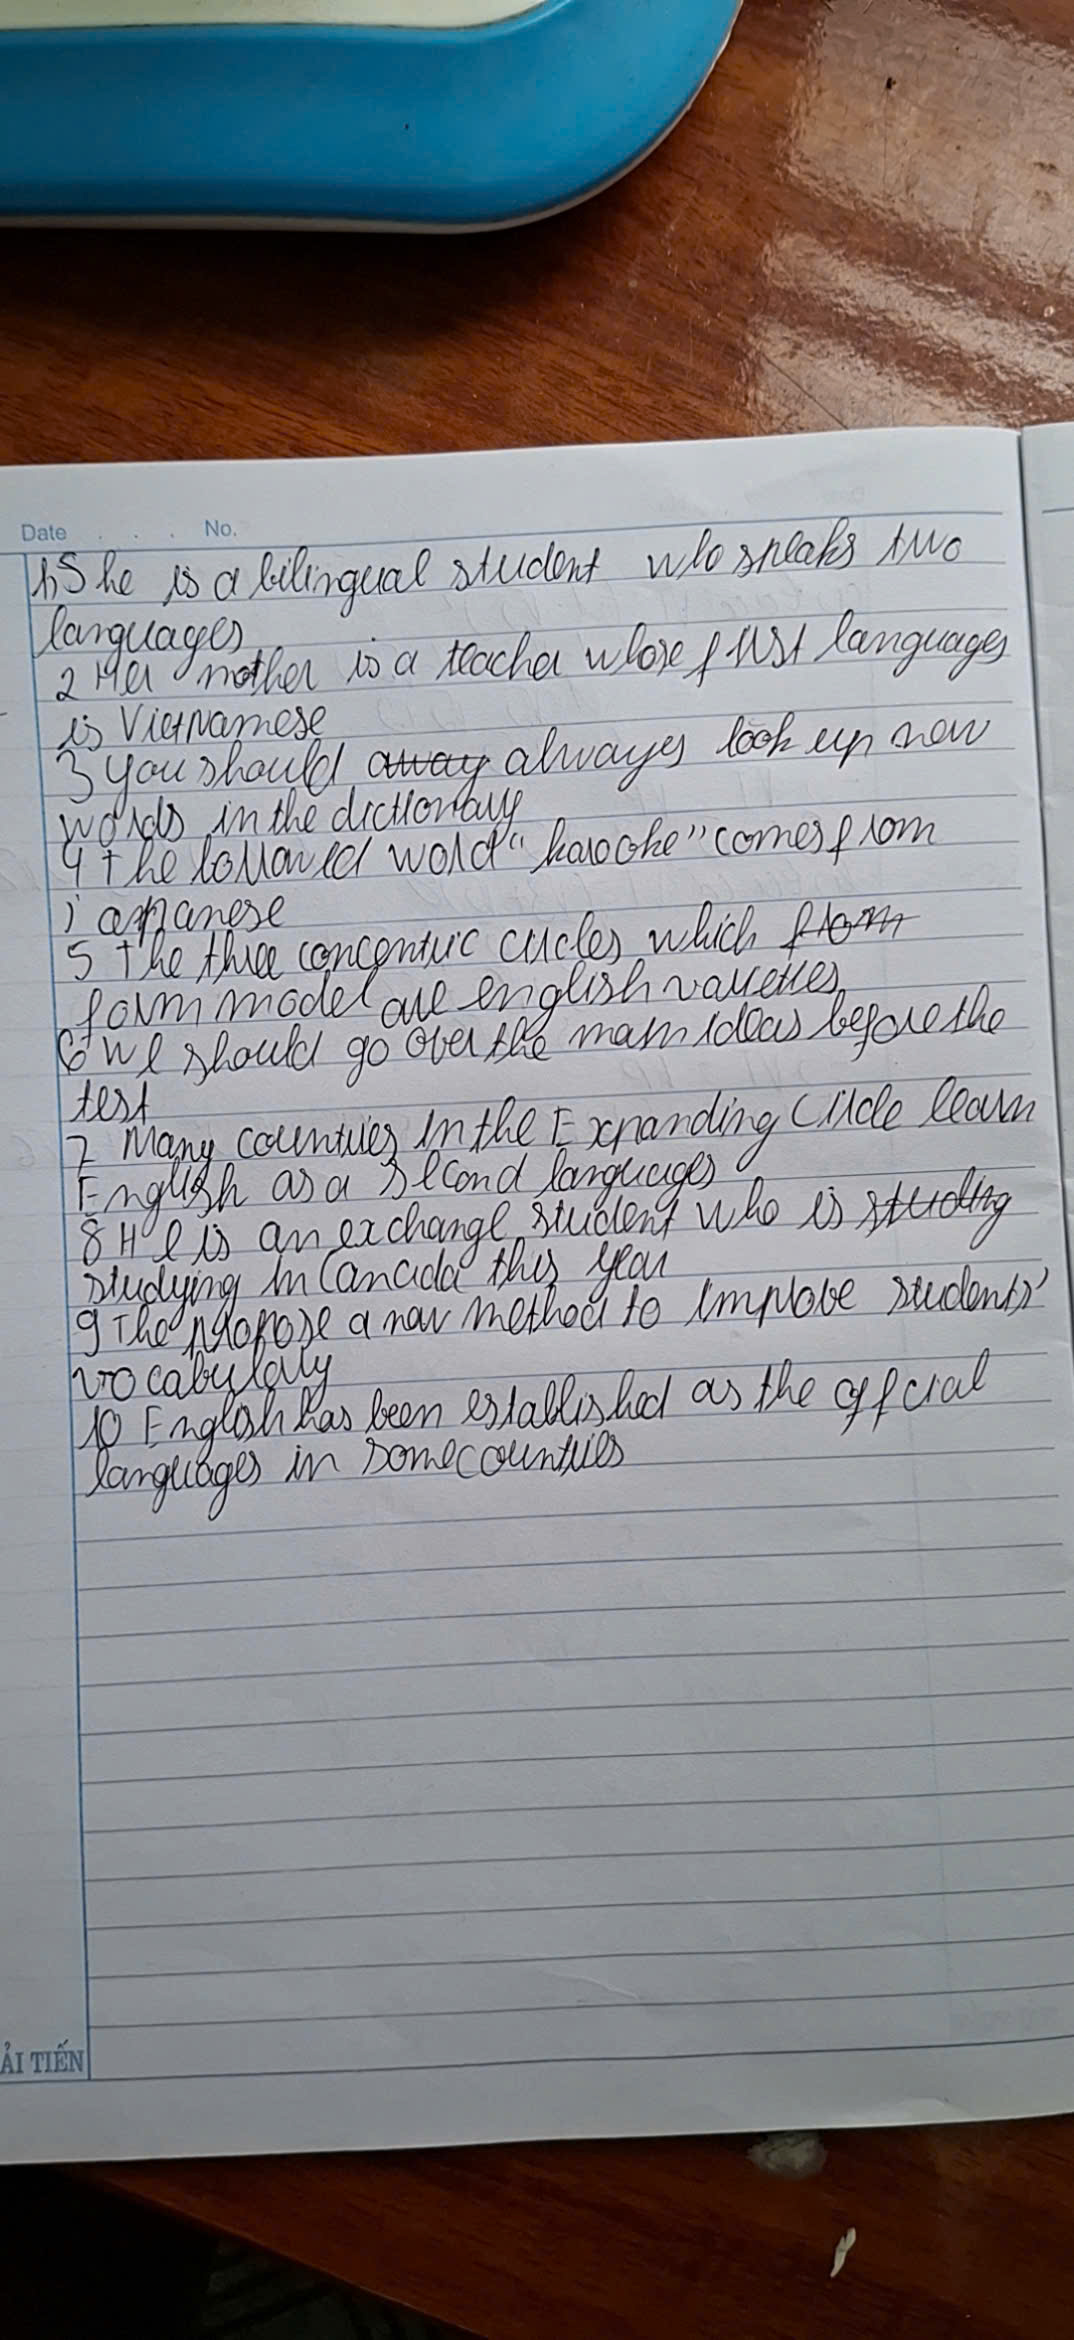 Date . . . . No.
1, She is a bilingual student who speaks two
languages
2 Her mother is a teacher whose first languages
is Vietnamese
3 you should away always look up new
words in the dictionary
4 The borrowed word "karaoke" comes from
japanese
5 The three concentric circles which from
form model are english varieties
6 We should go over the main ideas before the
test
7 Many countries in the Expanding Circle learn
English as a second languages
8 He is an exchange student who is studing
studying in Canada this year
9 The propose a new method to improve students'
vocabulary
10 English has been established as the offcial
languages in some countries
ẢI TIẾN